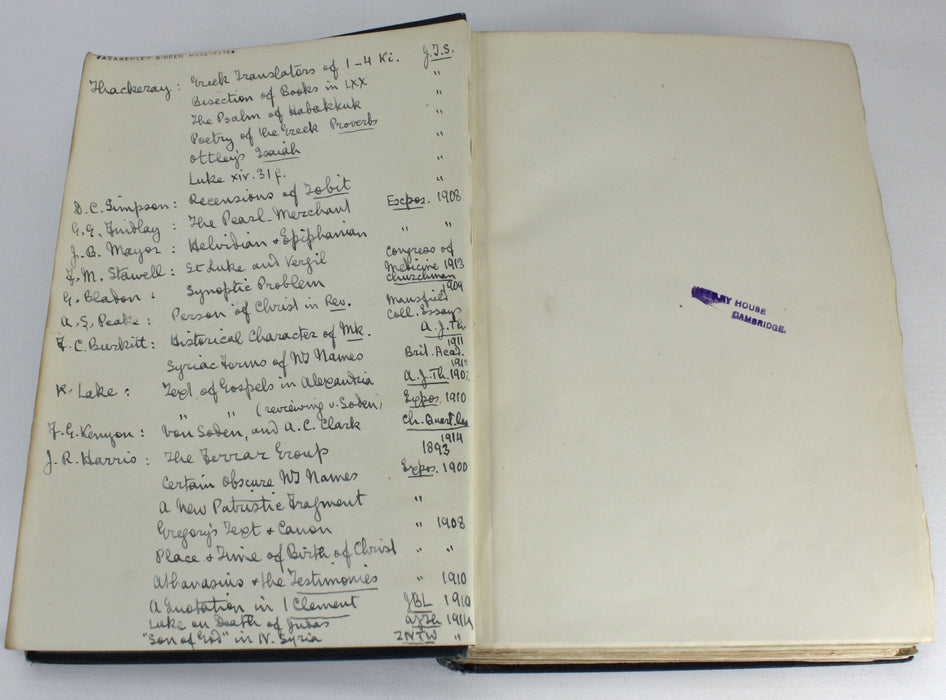 BAZAARLEY BINDER MANCHESTER
Thackeray: Greek Translators of 1-4 Ki. J.T.S.
Bisection of Books in LXX "
The Psalm of Habakkuk "
Poetry of the Greek Proverbs "
Ottley's Isaiah "
Luke xiv. 31 f. "
D.C. Simpson: Recensions of Tobit "
G.G. Findlay: The Pearl-Merchant Expos. 1908
J.B. Mayor: Helvidian & Epiphanian " "
F.M. Stawell: St Luke and Vergil Congress of Medicine 1913
G. Bladon: Synoptic Problem Churchman 1909
A.S. Peake: Person of Christ in Rev. Mansfield Coll. Essays
F.C. Burkitt: Historical Character of Mk. A.J.Th. 1911
Syriac Forms of NT Names Brit. Acad. 1912
K. Lake: Text of Gospels in Alexandria A.J.Th. 1902
" " (reviewing v. Soden) Expos. 1910
F.G. Kenyon: Von Soden, and A.C. Clark Ch. Quart. Rev. 1914
J.R. Harris: The Ferrar Group 1893
Certain obscure NT Names Expos. 1900
A New Patristic Fragment "
Gregory's Text & Canon " 1908
Place & Time of Birth of Christ " "
Athanasius & the Testimonies " 1910
A Quotation in 1 Clement JBL 1910
Luke on Death of Judas AJTh 1914
"Son of God" in N. Syria ZNTW "
HOUSE
CAMBRIDGE.